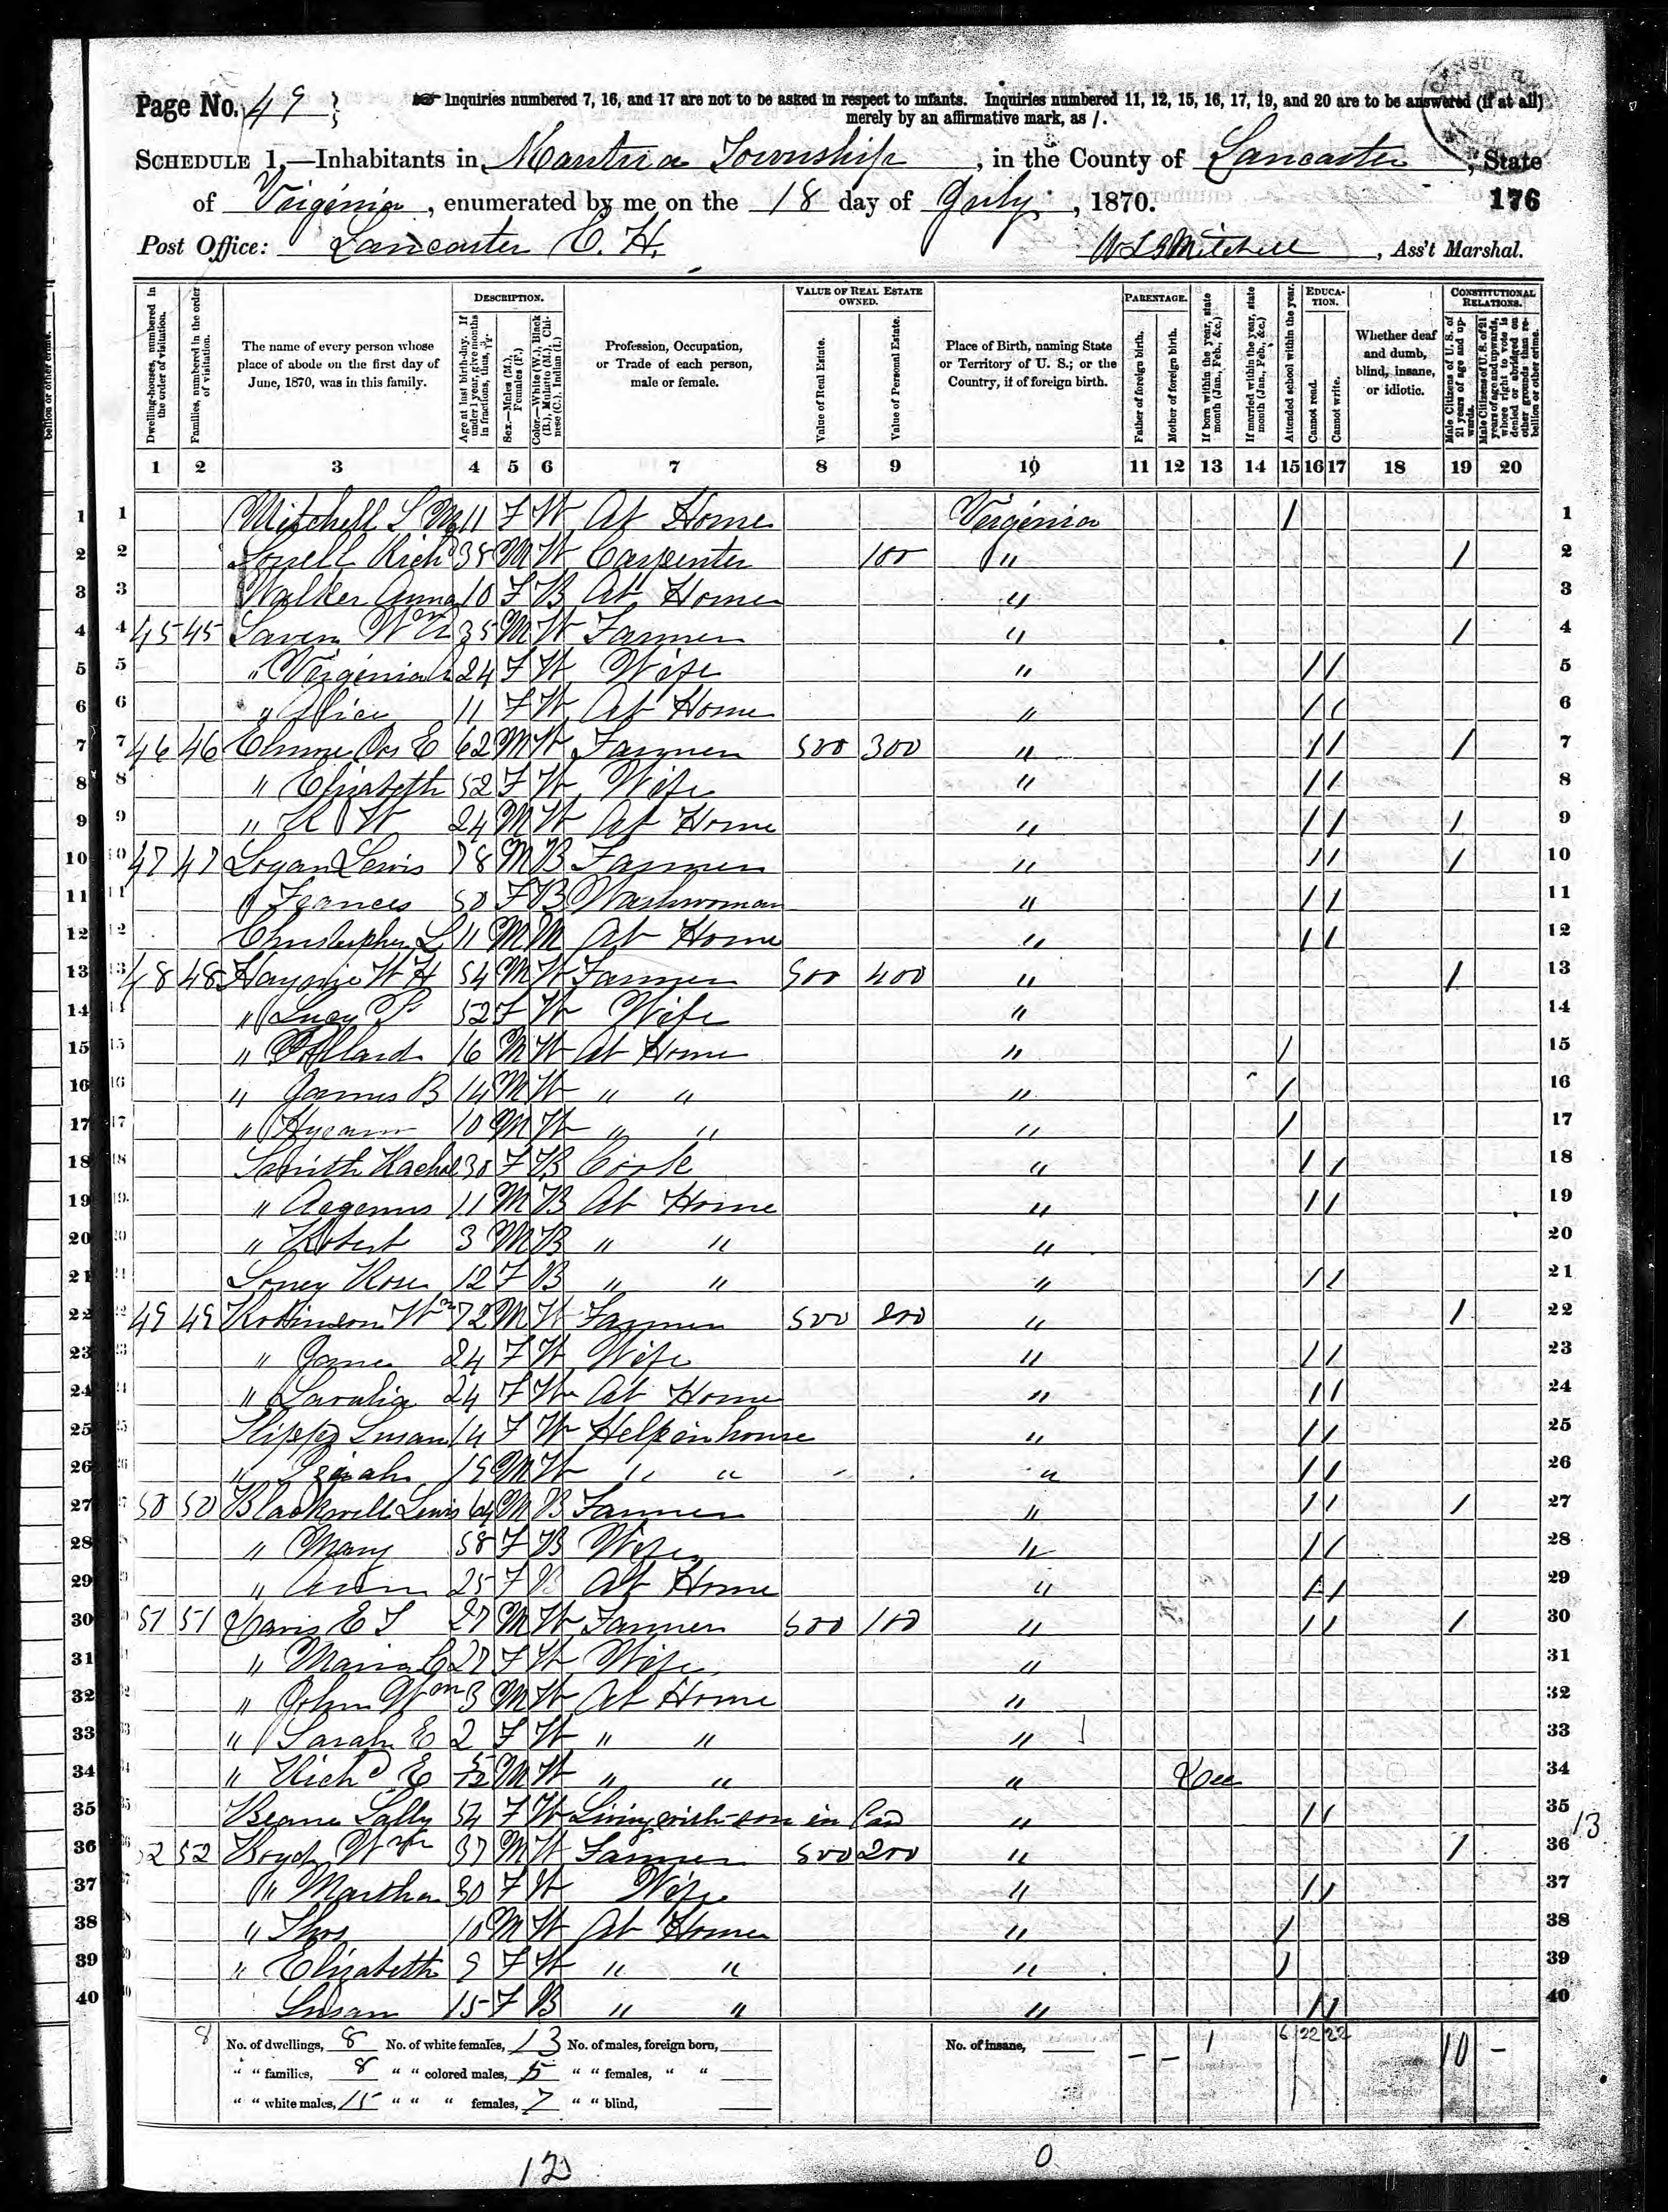 Page No. 49
Inquiries numbered 7, 16, and 17 are not to be asked in respect to infants. Inquiries numbered 11, 12, 15, 16, 17, 19, and 20 are to be answered (if at all)
merely by an affirmative mark, as /.
SCHEDULE 1.—Inhabitants in Mantua Township, in the County of Lancaster, State
of Virginia, enumerated by me on the 18 day of July, 1870.
176
Post Office: Lancaster C. H.
Mitchell, Ass't Marshal.
Dwelling-houses, numbered in the order of visitation.
Families, numbered in the order of visitation.
The name of every person whose place of abode on the first day of June, 1870, was in this family.
DESCRIPTION.
Age at last birth-day. If under 1 year, give months in fractions, thus,
Sex.—Males (M.), Females (F.)
Color.—White (W.), Black (B.), Mulatto (M.), Chinese (C.), Indian (I.)
Profession, Occupation, or Trade of each person, male or female.
VALUE OF REAL ESTATE OWNED.
Value of Real Estate.
Value of Personal Estate.
Place of Birth, naming State or Territory of U. S.; or the Country, if of foreign birth.
PARENTAGE.
Father of foreign birth.
Mother of foreign birth.
If born within the year, state month (Jan., Feb., &c.)
If married within the year, state month (Jan., Feb., &c.)
Attended school within the year.
EDUCATION.
Cannot read.
Cannot write.
Whether deaf and dumb, blind, insane, or idiotic.
CONSTITUTIONAL RELATIONS.
Male Citizens of U. S. of 21 years of age and upwards.
Male Citizens of U. S. of 21 years of age and upwards, whose right to vote is denied or abridged on other grounds than rebellion or other crime.
1 2 3 4 5 6 7 8 9 10 11 12 13 14 15 16 17 18 19 20
1 Mitchell 11 F W At Home Virginia / 1
2 Rich^d 38 M W Carpenter 100 " / 2
3 Walker Anna 10 F B At Home " 3
4 45 45 W^m 35 M W Farmer " / 4
5 " Virginia 24 F W Wife " / / 5
6 " Alice 11 F W At Home " / / 6
7 46 46 E 62 M W Farmer 500 300 " / / / 7
8 " Elizabeth 52 F W Wife " / / 8
9 " W 24 M W At Home " / / / 9
10 47 47 Logan Lewis 78 M B Farmer " / / / 10
11 " Frances 50 F B Washwoman " / / 11
12 Christopher L 11 M M At Home " / / 12
13 48 48 Haynie W H 54 M W Farmer 500 400 " / 13
14 " Lucy 52 F W Wife " 14
15 " Pollard 16 M W At Home " / 15
16 " James B 14 M W " " " / 16
17 " Hyram 10 M W " " " / 17
18 Smith Rachel 30 F B Cook " / / 18
19 " 11 M B At Home " / / 19
20 " Robert 3 M B " " " 20
21 Rose 12 F B " " " / / 21
22 49 49 Robinson W^m 72 M W Farmer 500 200 " / 22
23 " Jane 24 F W Wife " / / 23
24 " 24 F W At Home " / / 24
25 Susan 14 F W Help in house " / / 25
26 " 19 M W " " " / / 26
27 50 50 Blackwell Lewis 64 M B Farmer " / / / 27
28 " Mary 58 F B Wife " / / 28
29 " Ann 25 F B At Home " / / 29
30 51 51 Davis E 27 M W Farmer 500 100 " / / / 30
31 " Maria 27 F W Wife " 31
32 " John W^m 3 M W At Home " 32
33 " Sarah E 2 F W " " " 33
34 " Rich^d E 5/12 M W " " " Dec 34
35 Beane Sally 54 F W Living with son in law " / / 35
13
36 52 52 Boyd W^m 37 M W Farmer 500 200 " / 36
37 " Martha 30 F W Wife " / / 37
38 " Thos 10 M W At Home " / 38
39 " Elizabeth 9 F W " " " / 39
40 Susan 15 F B " " " / / 40
8 No. of dwellings, 8 No. of white females, 13 No. of males, foreign born, No. of insane, — — 1 6 22 22 10 —
" " families, 8 " " colored males, 5 " " females, " "
" " white males, 15 " " " females, 7 " " blind,
12 0